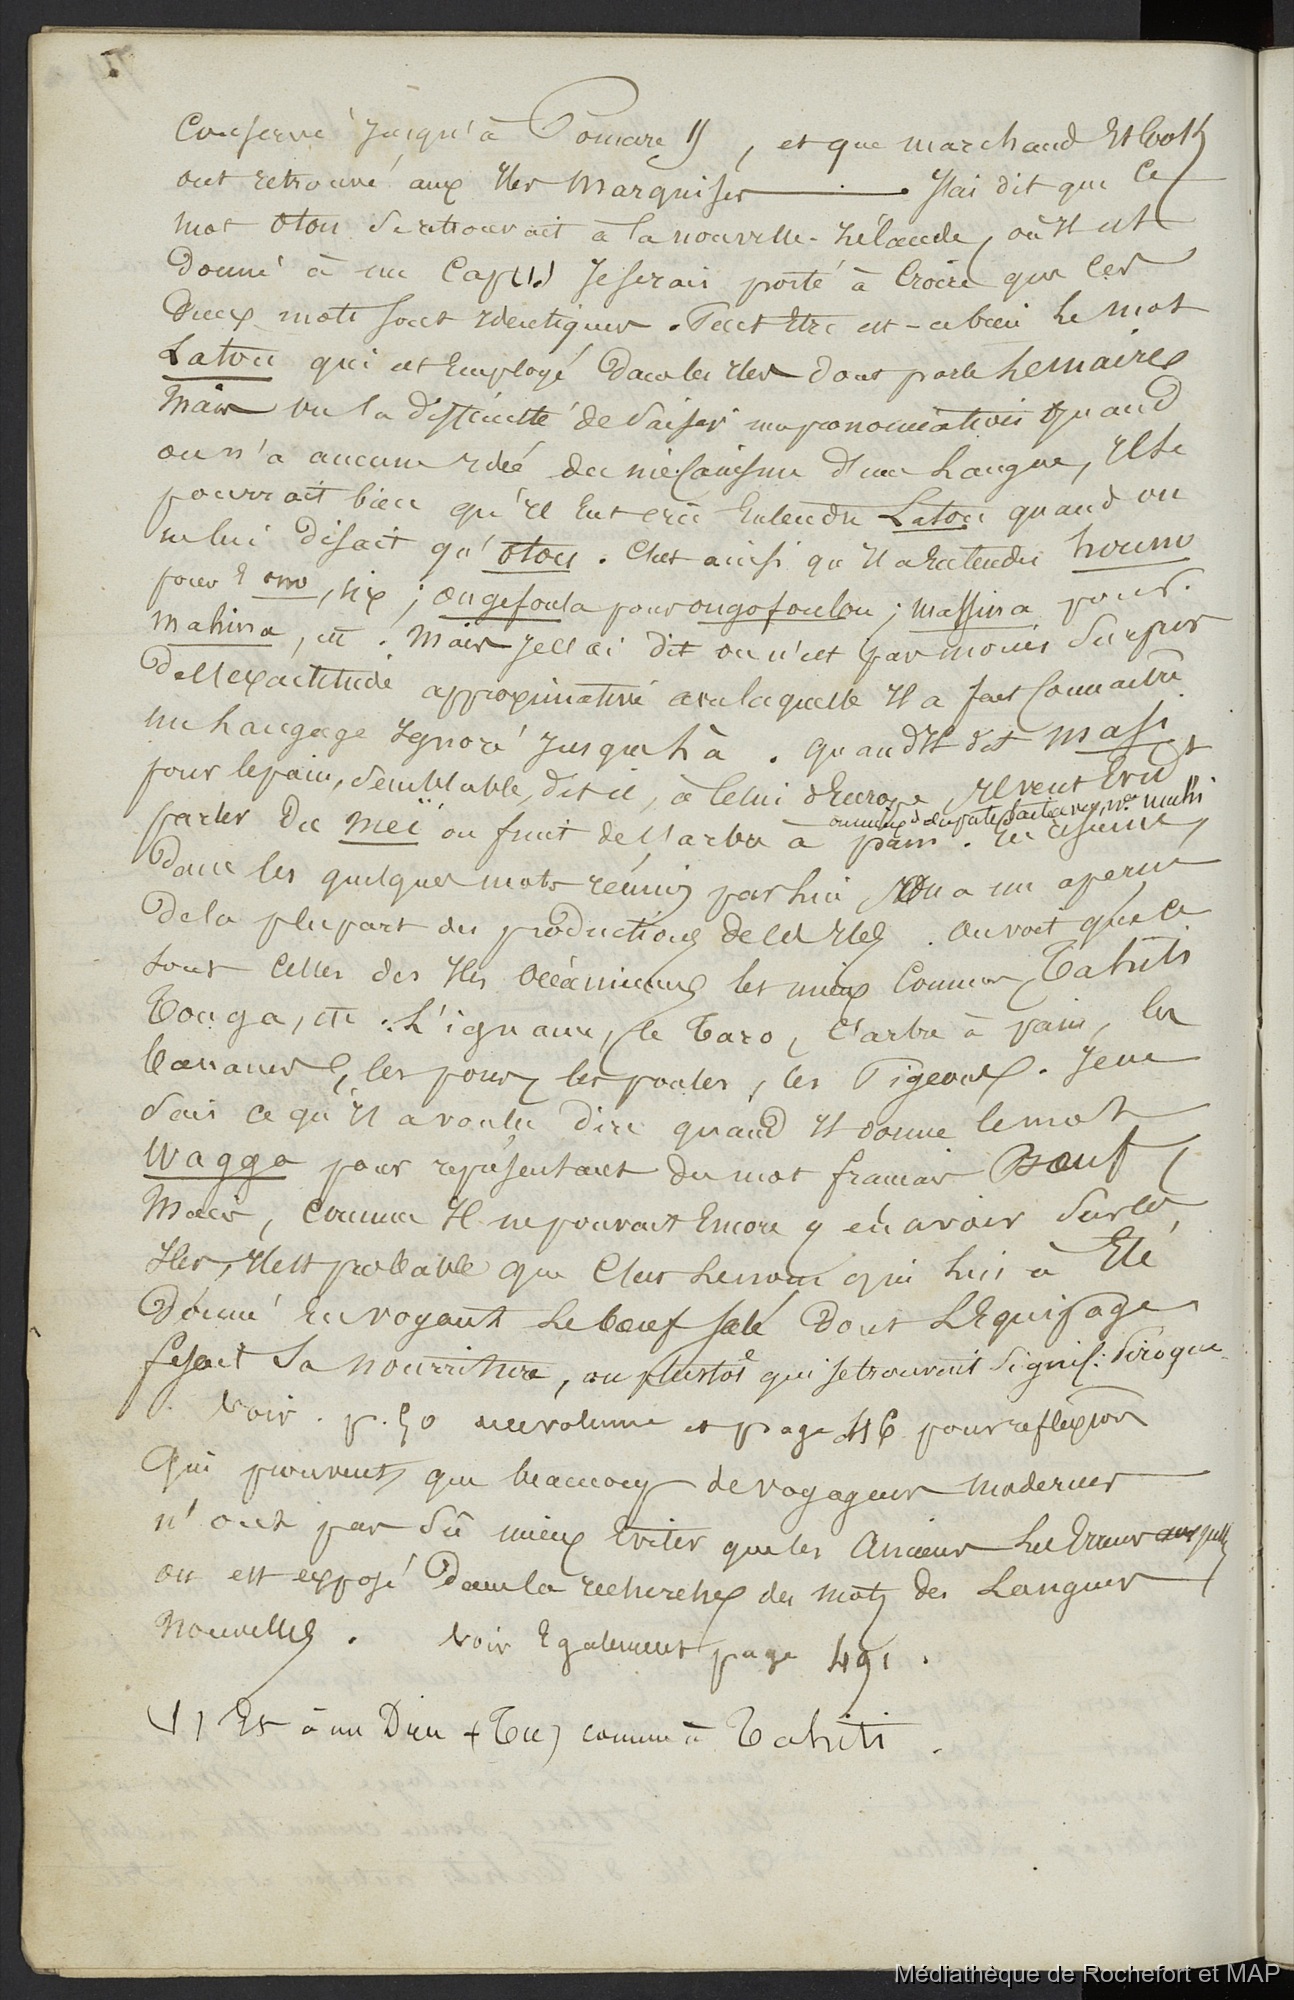 Conservé jusqu'à Pomare II, et que marchand et
ont retrouvé aux Iles Marquises ———. J'ai dit que ce
mot Otou se retrouvait à la nouvelle-Zélande, où il est
donné à un Cap (1). Je serais porté à croire que ces
deux mots sont identiques. Peut être est-ce bien le mot
Latou qui est employé dans les Iles dont parle Lemaire
Mais vu la difficulté de saisir une prononciation quand
on n'a aucune idée du mécanisme d'une Langue, Il se
pourrait bien qu'il eut crû entendre Latou quand on
ne lui disait qu'Otou. C'est ainsi qu'il a entendu houno
pour E ono, six ; ongefoula pour ongofoulou ; massina pour
mahina, etc. Mais je l'ai dit on n'est pas moins surpris
de l'exactitude approximative avec laquelle Il a fait connaitre
un Langage ignoré jusque là. Quand Il dit masi
pour le pain, semblable, dit il, à celui d'Europe, Il veut évid.t
ou mieux de la pate mahi
parler du meï ou fruit de l'arbre à pain. En résumé,
Dans les quelques mots réunis par lui, on a un aperçu
de la plupart des productions de ces Iles. On voit que ce
sont celles des Iles Océaniennes les mieux connues, Tahiti
Tonga, etc. L'igname, le Taro, l'arbre à pain, les
bananes, les porcs, les poules, les Pigeons. Je ne
sais ce qu'il a voulu dire quand Il donne le mot
Wagga pour représentant du mot français Bœuf,
Mais, comme Il ne pouvait encore y en avoir sur les
Iles, Il est probable que c'est le nom qui lui a été
donné en voyant le bœuf salé dont l'Equipage
fesait sa nourriture, ou plustôt qui se trouvent signif: Pirogue.
Voir p. 50 volume et page 46 pour réflexions
Qui prouvent que beaucoup de voyageurs modernes
n'ont pas sû mieux éviter que les Anciens les Erreurs auxquelles
on est exposé dans la recherche des mots des Langues
Nouvelles. Voir Egalement page 491.
(1) Et à un Dieu (Tu) comme à Tahiti.
Médiathèque de Rochefort et MAP